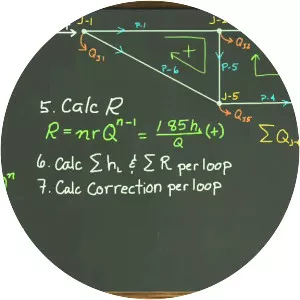 J-1
P-1
J-2
QJ1
QJ2
+
P-6
P-5
J-5
P-4
QJ5
5. Calc R
R = nrQⁿ⁻¹ = 1.85hL/Q (+)
ΣQJ
6. Calc ΣhL & ΣR per loop
Qⁿ
7. Calc Correction per loop